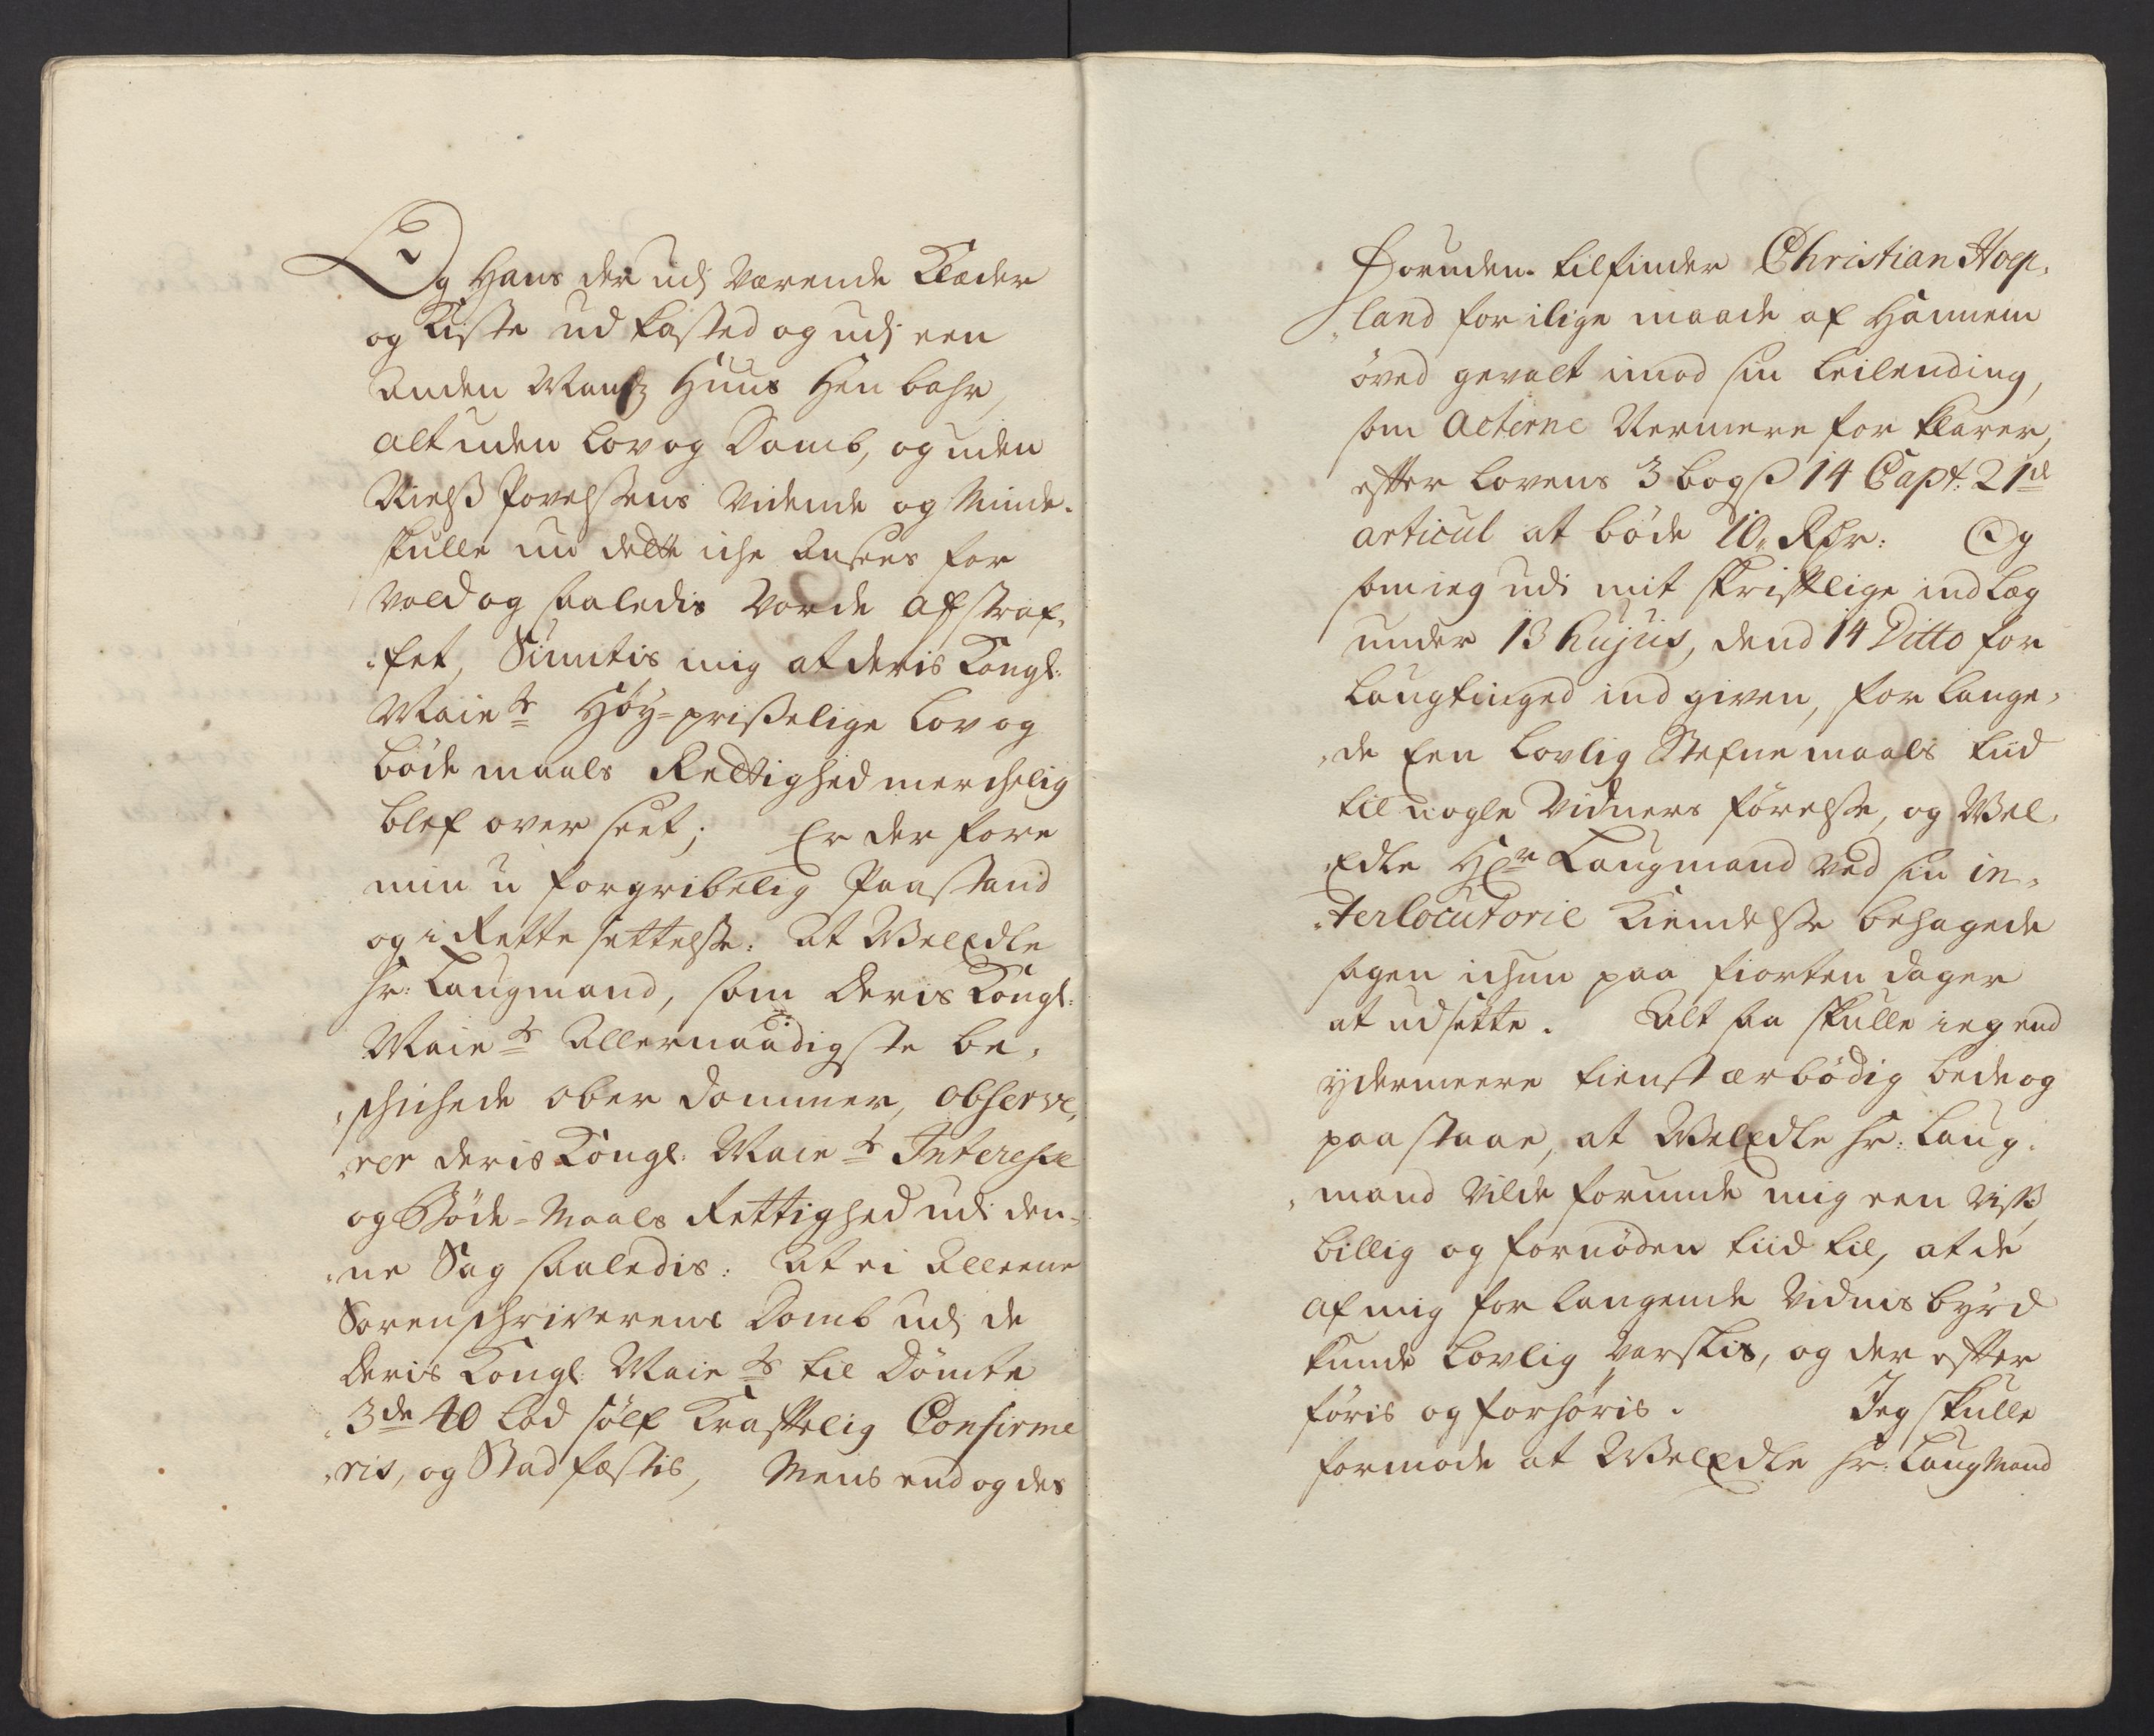 Og Hans der udj værende Klæder
og Kiste ud kasted og udj een
anden Mandz Huus hen bahr,
alt uden Lov og Domb, og uden
Nielß Povelßens Vidende og Minde.
skulle nu dette iche ansees for
Vold og saaledis vorde afstraf,
,fet, Siuntis mig at deris Kongl:
Maiets Høy-prißelige Lov og
bøde maals Rettighed merchelig
blef over seet; Er der fore
min u forgribelig Paastand
og i Rette settelße: At WelEdle
Hr: Laugmand, som deris Kongl:
Maiets Allernaadigste be,
,schichede ober Dommer, observe,
,rer deris Kongl: Maiets Interesse
og Bøde-Maals Rettighed udi den,
,ne Sag saaledis: At ei alleene
Sorenschriverens Domb udj de
deris Kongl: Maiets til Dømte
3de 40 Lod sølf Kraftelig Confirme
,ris, og Stadfæstis, Mens end og des
Foruden tilfinder Christian Hoep,
,land for ilige maade af Hannem
øved gevalt imod sin Leilending,
som acterne Nermere for klarer,
efter Lovens 3 bogß 14 Capt: 21de
articul at bøde 10 Rdr: Og
som ieg udi mit skriftlige indlæg
under 13 hujus, dend 14 Ditto for
Laugtinged ind given, for lange,
,de Een Lovlig Stefne maals tiid
til nogle Vidners førelße, og Wel,
,Edle Hr Laugmand ved sin in,
,terlocutorie Kiendelße behagede
sagen ichun paa fiorten dager
at udsette. Alt saa skulle ieg end
ydermeere tienst ærbødig bede og
paastaae, at WelEdle Hr: Laug,
,mand vilde forunde mig een viß,
billig og fornøden tiid til, at de
af mig for langende Vidnis byrd
kunde Lovlig varslis, og der efter
føris og forhøris. Jeg skulle
formode at WelEdle Hr: LaugMand